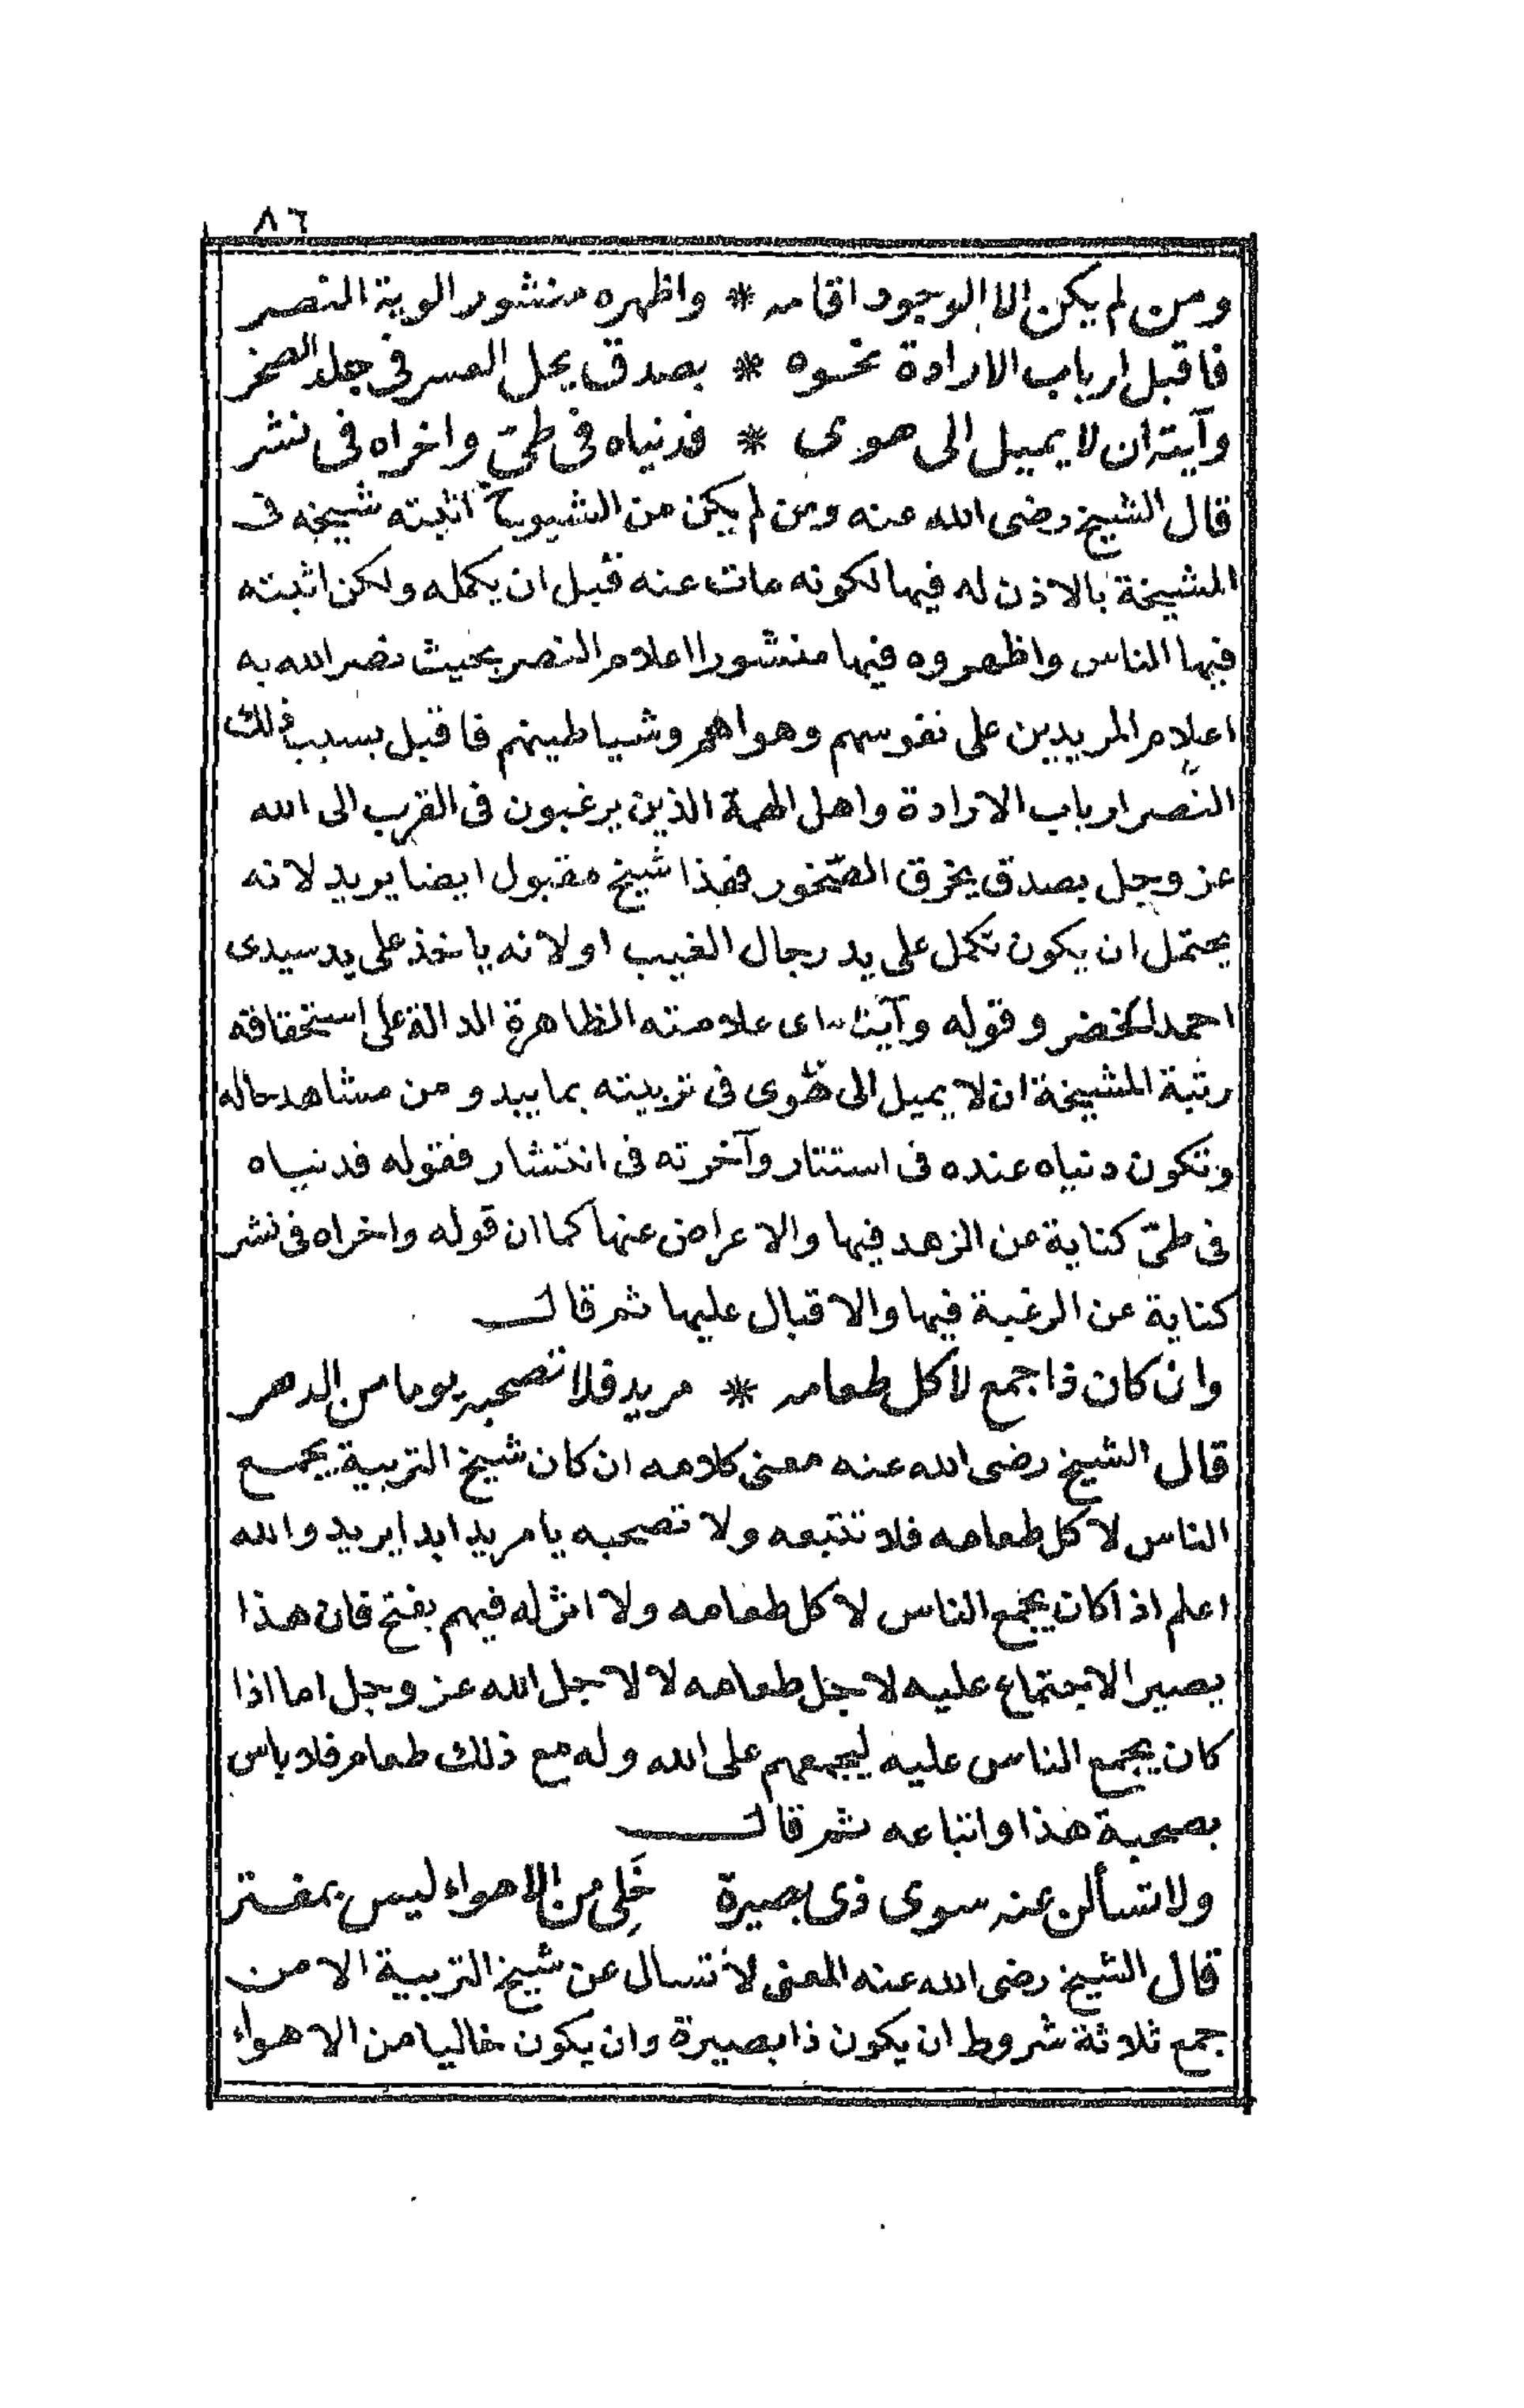 ٨٦
ومن لم يكن الا الوجود اقامه * واظهره منشور الوية النصر
فاقبل ارباب الارادة نحوه * بصدق يحل العسر فى جلد الصخر
وآيته ان لا يميل الى هوى * فدنياه فى طىّ واخراه فى نشر
قال الشيخ رضى الله عنه ومن لم يكن من الشيوخ اثبته شيخه فى
المشيخة بالاذن له فيها لكونه مات عنه قبل ان يكمله ولكن اثبته
فيها الناس واظهروه فيها منشورا اعلام النصر بحيث نصر الله به
اعلام المريدين على نفوسهم وهواهم وشياطينهم فاقبل بسبب ذلك
النصر ارباب الارادة واهل الهمة الذين يرغبون فى القرب الى الله
عز وجل بصدق يخرق الصّخور فهذا شيخ مقبول ايضا يريد لانه
يحتمل ان يكون تكمل على يد رجال الغيب او لانه ياخذ على يد سيدى
احمد الخضر وقوله وآيته اى علامته الظاهرة الدالة على استحقاقه
رتبة المشيخة ان لا يميل الى هَوى فى تربيته بما يبدو من مشاهد حاله
وتكون دنياه عنده فى استتار وآخرته فى انتشار فقوله فدنياه
فى طىّ كناية عن الزهد فيها والاعراض عنها كما ان قوله واخراه فى نشر
كناية عن الرغبة فيها والاقبال عليها ثم قال
وان كان ذا جمع لاكل طعامه * مريد فلا تصحبه يوما من الدهر
قال الشيخ رضى الله عنه معنى كلامه ان كان شيخ التربية يجمع
الناس لاكل طعامه فلا تتبعه ولا تصحبه يا مريد ابدا يريد والله
اعلم اذا كان يجمع الناس لاكل طعامه ولا اثر له فيهم بفتح فان هذا
يصير الاجتماع عليه لاجل طعامه لا لاجل الله عز وجل اما اذا
كان يجمع الناس عليه ليجمعهم على الله وله مع ذلك طعام فلا باس
بصحبة هذا واتباعه ثم قال
ولا تسألن عنه سوى ذى بصيرة خَلِى من الاهواء ليس بمغتر
قال الشيخ رضى الله عنه المعنى لا تسال عن شيخ التربية الا من
جمع ثلاثة شروط ان يكون ذا بصيرة وان يكون خاليا من الاهواء